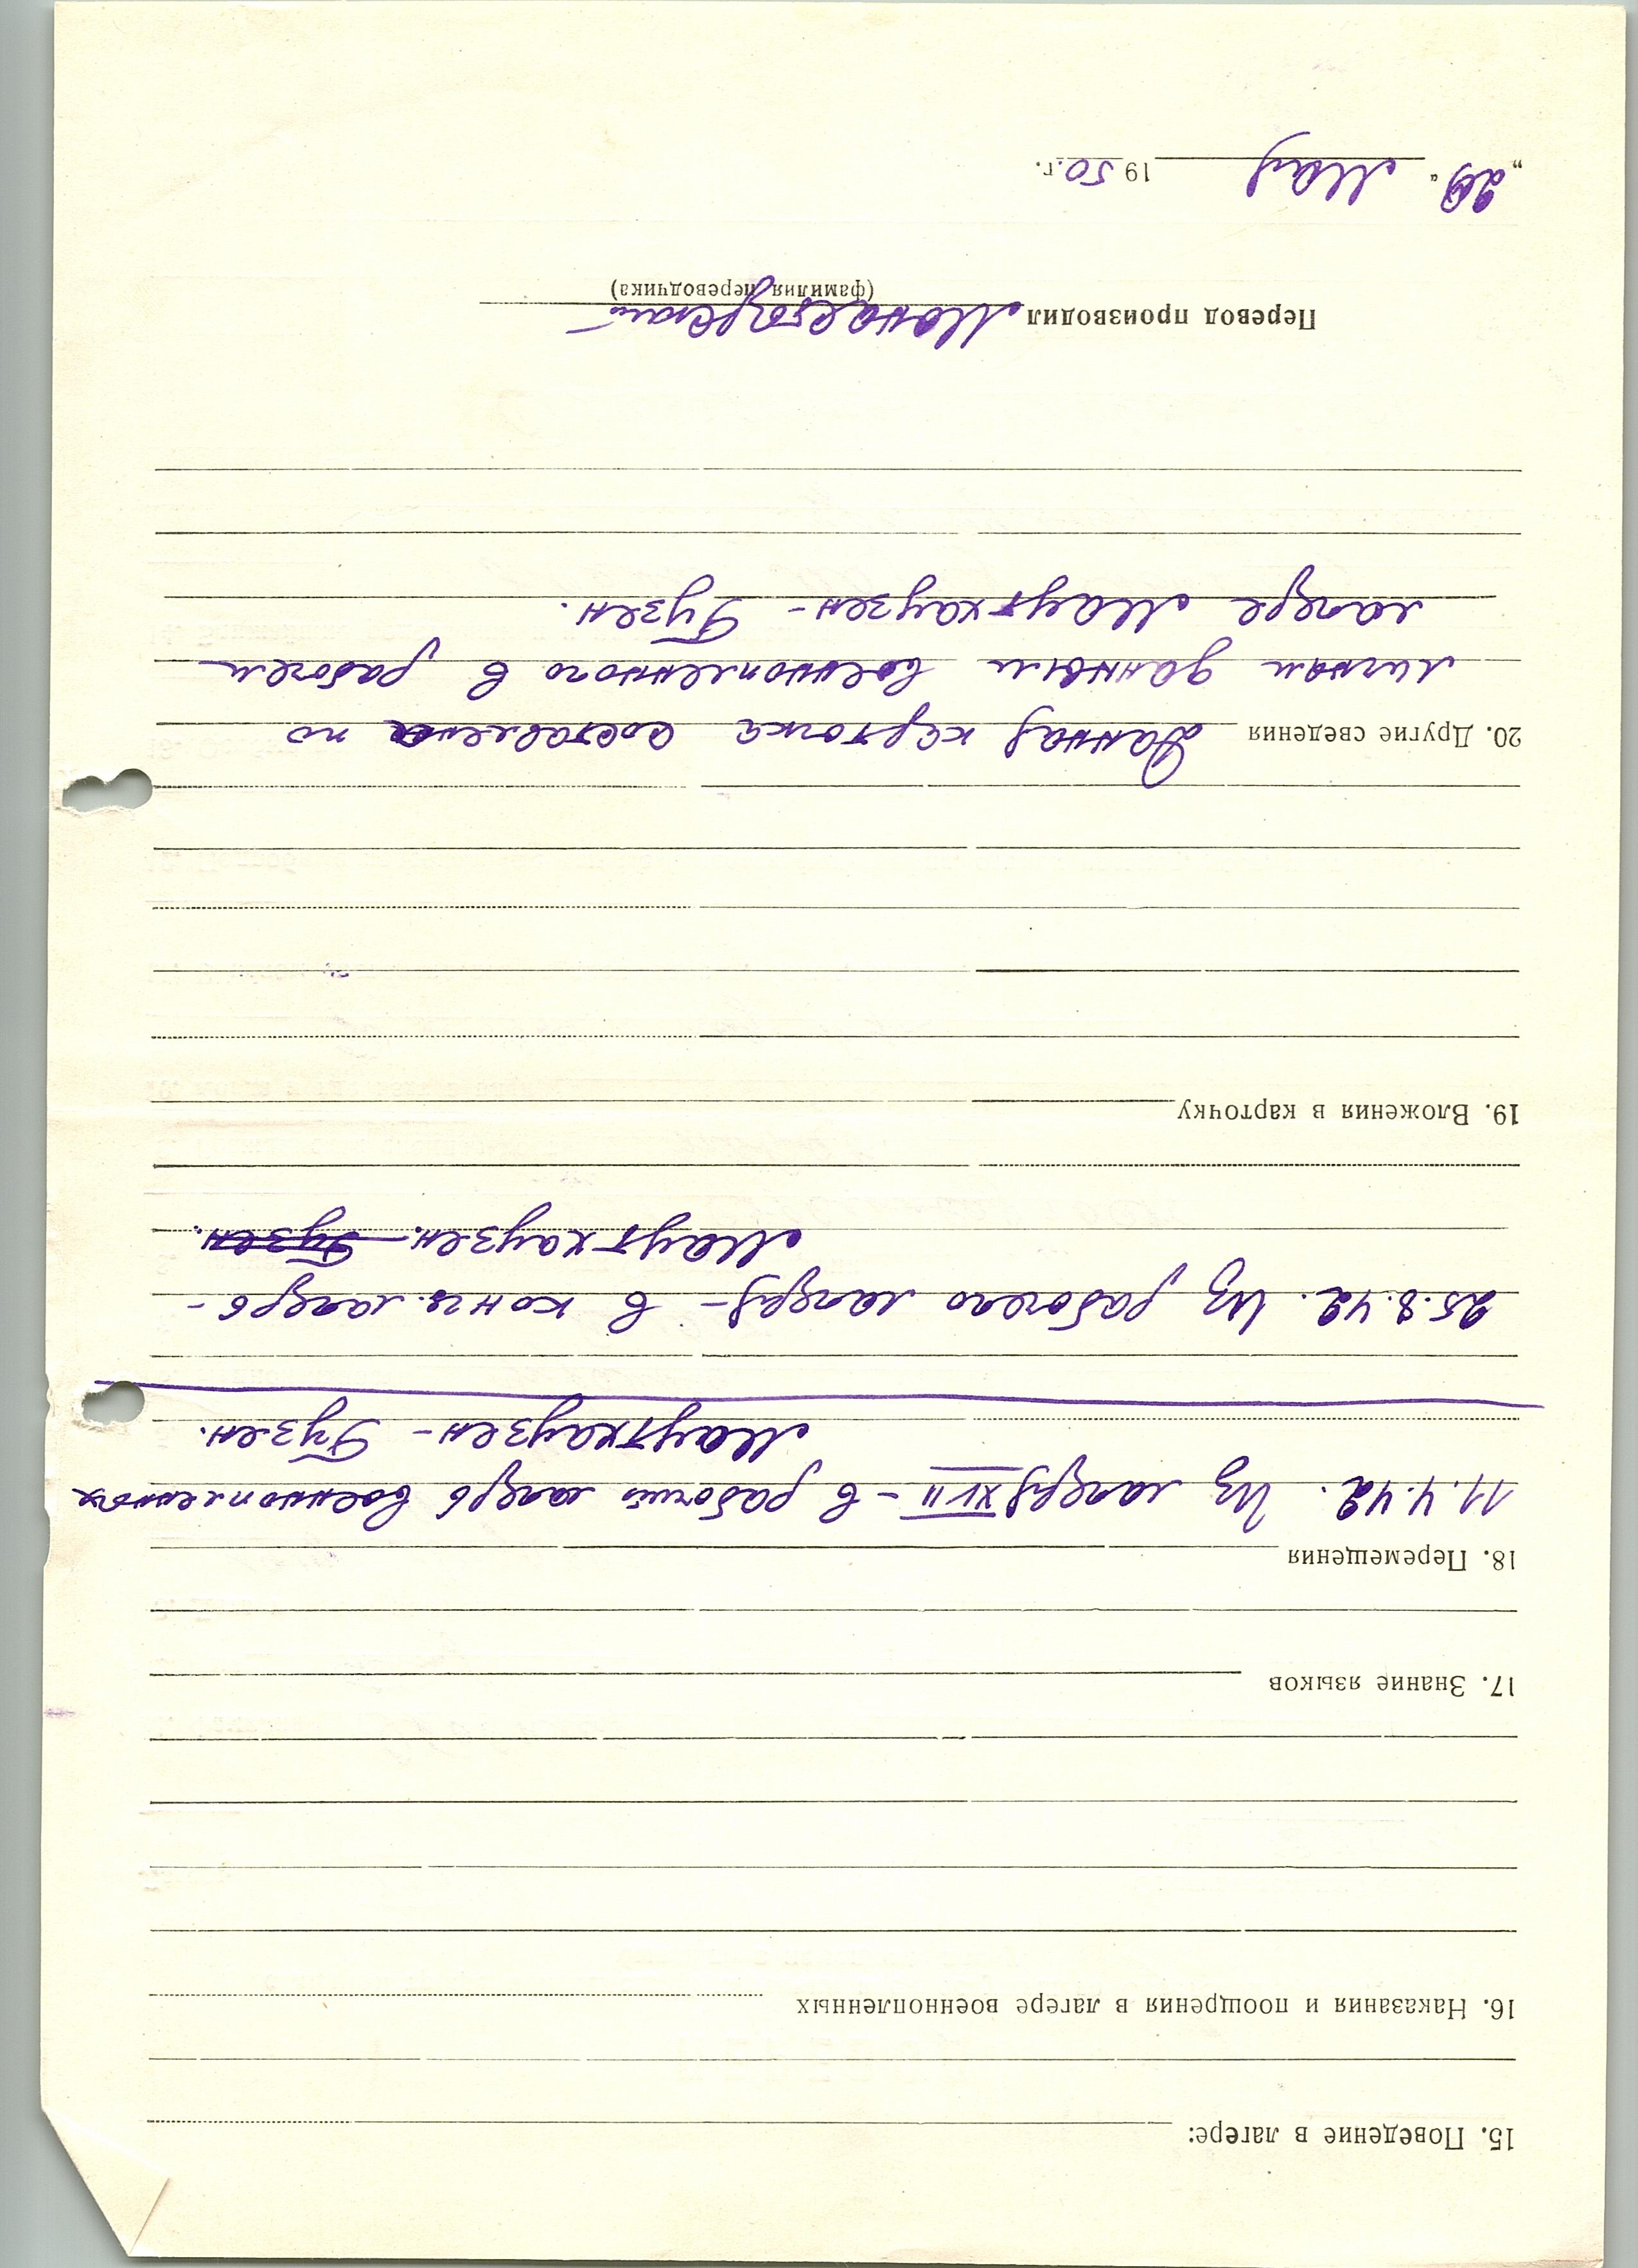 15. Поведение в лагере:
16. Наказания и поощрения в лагере военнопленных
17. Знание языков
18. Перемещения
11.4.42. Из лагеря XVII - в рабочий лагерь военнопленных
Маутхаузен - Гузен.
25.8.42. Из рабочего лагеря - в конц. лагерь -
Маутхаузен. - Гузен.
19. Вложения в карточку
20. Другие сведения Данная карточка составлена по
личным данным военнопленного в рабочем
лагере Маутхаузен - Гузен.
Перевод производил Монастырский
(фамилия переводчика)
„ “ Мая 1950. г.